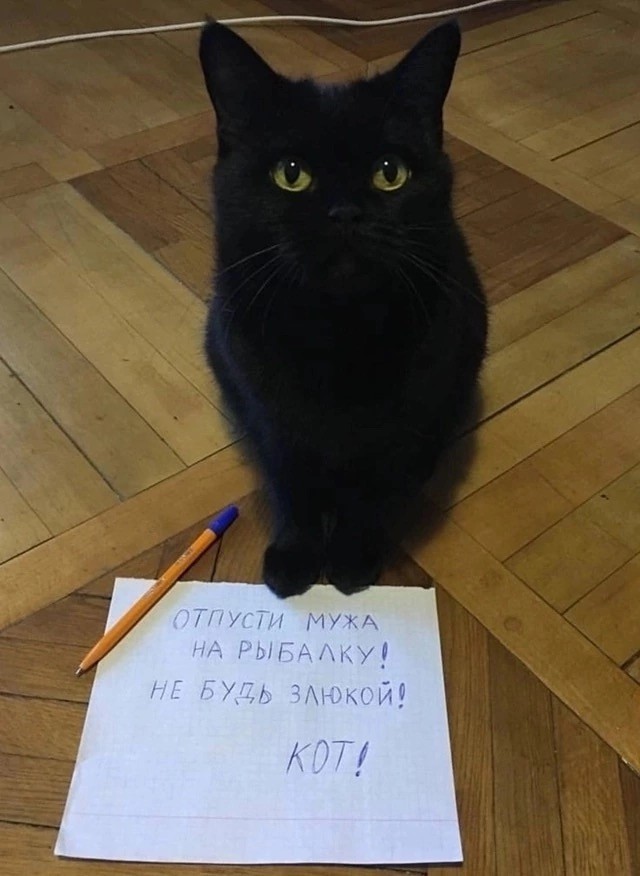 ОТПУСТИ МУЖА
НА РЫБАЛКУ!
НЕ БУДЬ ЗЛЮКОЙ!
КОТ!